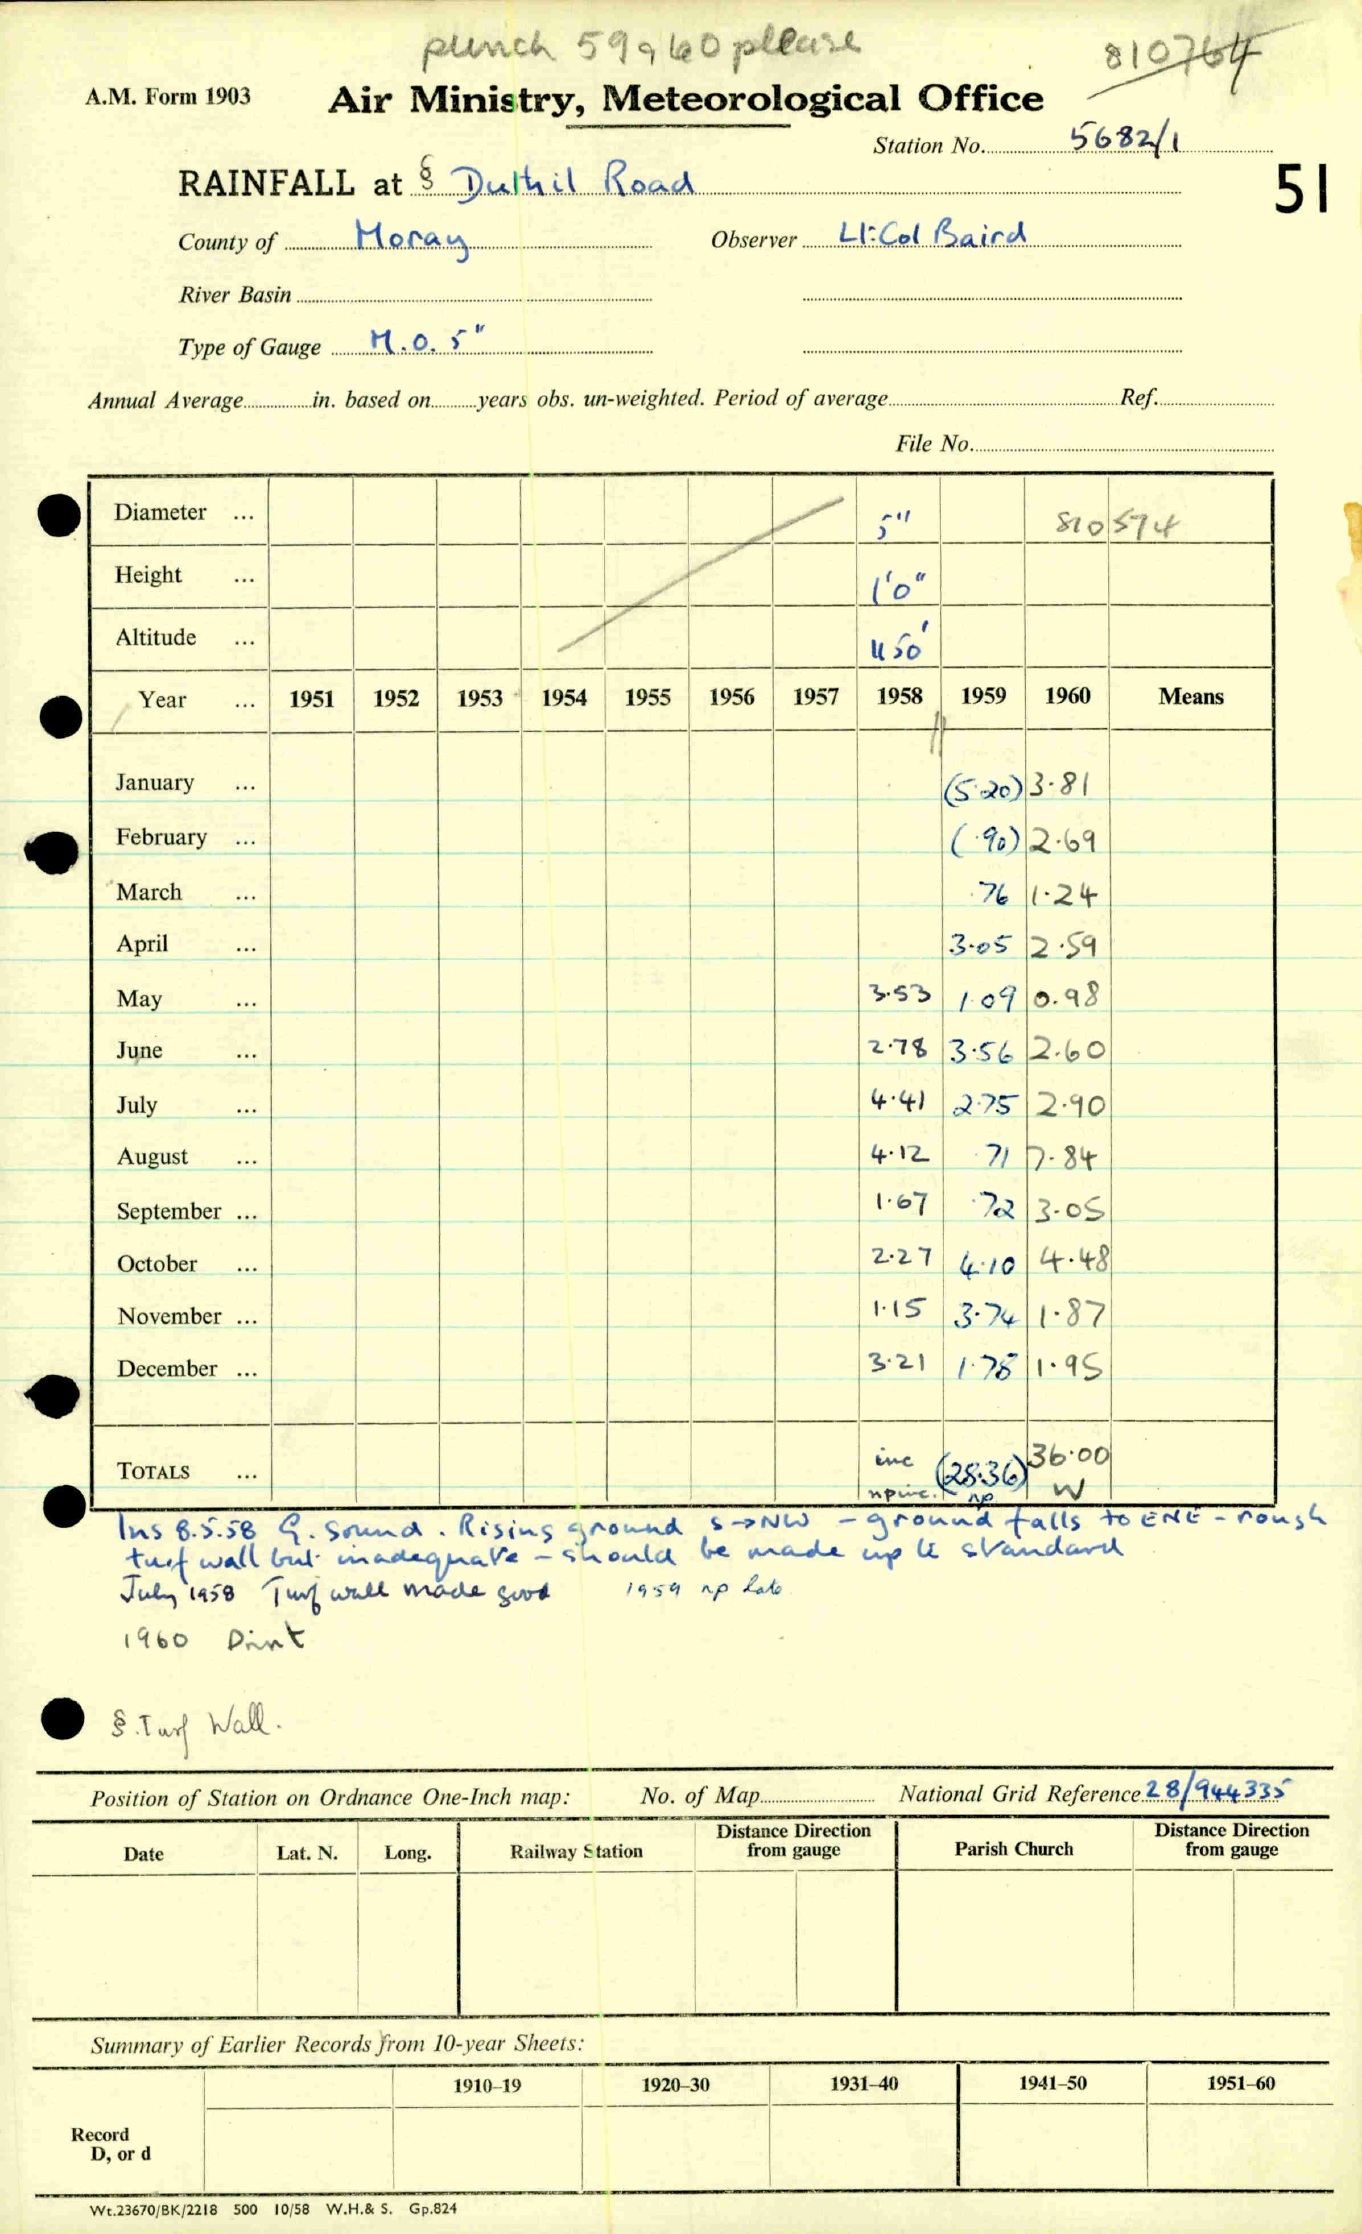 punch 59 & 60 please
810764
A.M. Form 1903
Air Ministry, Meteorological Office
Station No. 5682/1
RAINFALL at § Duthil Road
51
County of Moray Observer Lt:Col Baird
River Basin
Type of Gauge M.O. 5"
Annual Average in. based on years obs. un-weighted. Period of average Ref.
File No.
Diameter ... 5" 810574
Height ... 1'0"
Altitude ... 1150'
Year ... 1951 1952 1953 1954 1955 1956 1957 1958 1959 1960 Means
January ... (5.20) 3.81
February ... (.90) 2.69
March ... .76 1.24
April ... 3.05 2.59
May ... 3.53 1.09 0.98
June ... 2.78 3.56 2.60
July ... 4.41 2.75 2.90
August ... 4.12 .71 7.84
September ... 1.67 .72 3.05
October ... 2.27 4.10 4.48
November ... 1.15 3.74 1.87
December ... 3.21 1.78 1.95
TOTALS ... inc (28.36) 36.00
np inc. np W
Ins 8.5.58 G. sound. Rising ground S→NW - ground falls to ENE - rough
turf wall but inadequate - should be made up to standard
July 1958 Turf wall made good 1959 np late
1960 Dint
§ Turf Wall.
Position of Station on Ordnance One-Inch map: No. of Map National Grid Reference 28/944335
Date Lat. N. Long. Railway Station Distance Direction from gauge Parish Church Distance Direction from gauge
Summary of Earlier Records from 10-year Sheets:
1910-19 1920-30 1931-40 1941-50 1951-60
Record
D, or d
Wt.23670/BK/2218 500 10/58 W.H.& S. Gp.824